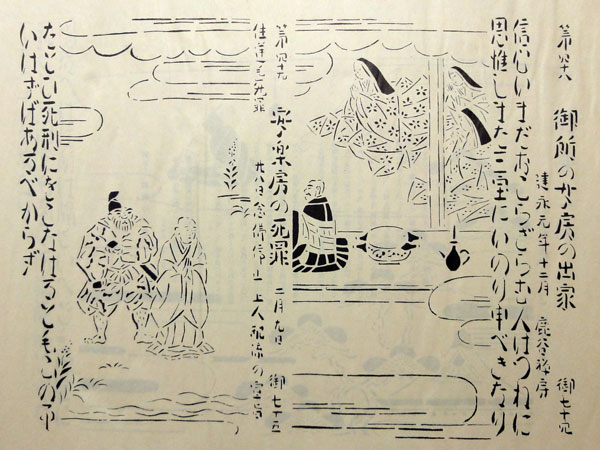 御所の女房の出家 御七十四
建永元年十二月 鹿谷禅房
信心いまだおこらざらむ人はつねに
思惟しまた三宝にいのり申べきなり
安楽房の死罪 二月九日 御七十五
住蓮も死罪 廿八日念佛停止 上人配流の宣旨
たとひ死刑にをこなはるともこの事
いはずばあるべからず